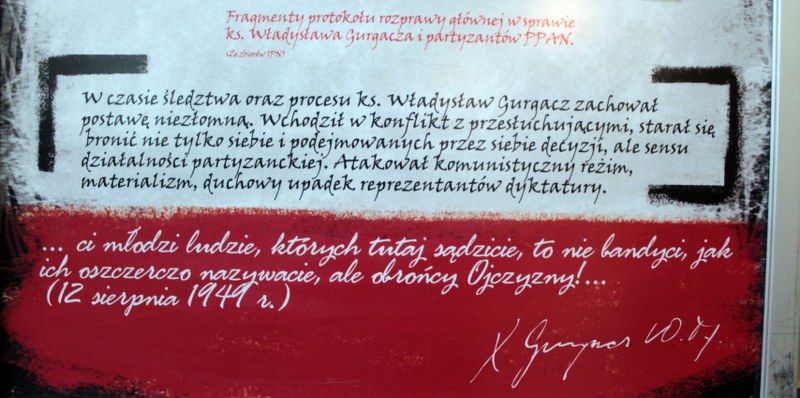 Fragmenty protokołu rozprawy głównej w sprawie
ks. Władysława Gurgacza i partyzantów PPAN.
(Ze zbiorów IPN)
W czasie śledztwa oraz procesu ks. Władysław Gurgacz zachował
postawę niezłomną. Wchodził w konflikt z przesłuchującymi, starał się
bronić nie tylko siebie i podejmowanych przez siebie decyzji, ale sensu
działalności partyzanckiej. Atakował komunistyczny reżim,
materializm, duchowy upadek reprezentantów dyktatury.
... ci młodzi ludzie, których tutaj sądzicie, to nie bandyci, jak
ich oszczerczo nazywacie, ale obrońcy Ojczyzny!...
(12 sierpnia 1949 r.)
X. Gurgacz